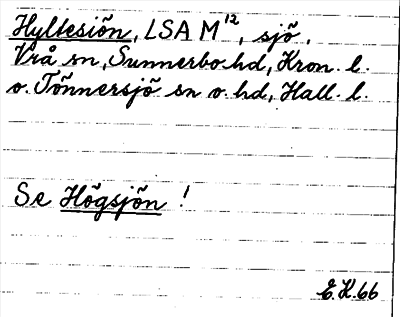 Hyltesjön, LSA M¹², sjö,
Vrå sn, Sunnerbo hd, Kron. l.
o. Tönnersjö sn o. hd, Hall. l.
Se Högsjön !
E.K.66